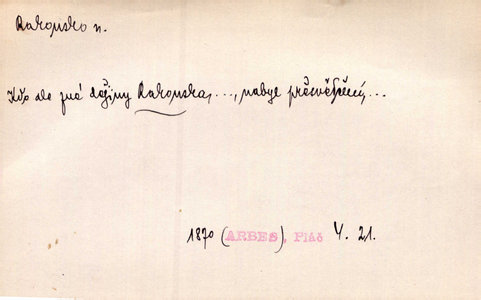 Rakousko n.
Kdo ale zná dějiny Rakouska, ..., nabyl přesvědčení, ...
1870 (ARBES), Pláč Y. 21.